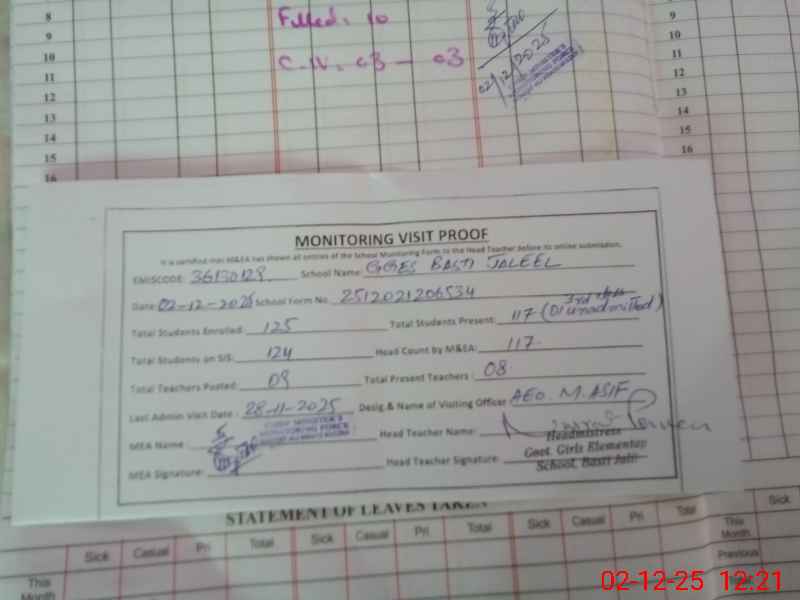 8
9
10
11
12
13
14
15
16
Filled: 10
C.W. 03 - 03
02/12/2025
9
10
11
12
13
14
15
16
MONITORING VISIT PROOF
It is certified that M&EA has shown all entries of the School Monitoring Form to the Head Teacher before its online submission.
EMISCODE: 36130129 School Name: GGES BASTI JALEEL
Date: 02-12-2025 School Form No. 2512021206534
3rd class
Total Students Enrolled: 125 Total Students Present: 117 (01 unadmitted)
Total Students on SIS: 124 Head Count by M&EA: 117.
Total Teachers Posted: 09 Total Present Teachers : 08
Last Admin Visit Date : 28-11-2025 Desig & Name of Visiting Officer AEO. M. ASIF
MEA Name : CHIEF MINISTER'S MONITORING FORCE Head Teacher Name:
MEA Signature: Head Teacher Signature:
Headmistress
Govt. Girls Elementary
School, Basti Jalil
STATEMENT OF LEAVES TAKEN
Sick Casual Pri Total Sick Casual Pri Total Sick Casual Pri Total This Month Sick
This Month
Previous
02-12-25 12:21